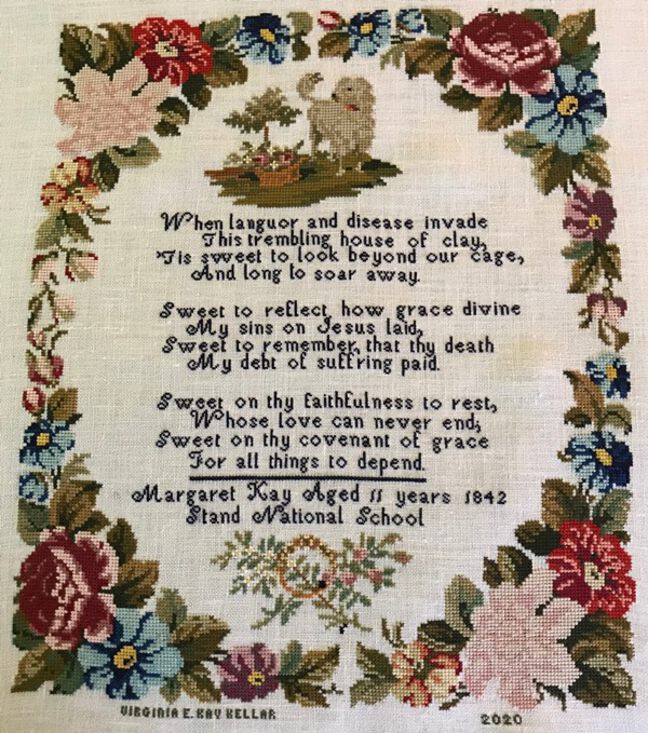 When languor and disease invade
This trembling house of clay,
'Tis sweet to look beyond our cage,
And long to soar away.
Sweet to reflect, how grace divine
My sins on Jesus laid,
Sweet to remember, that thy death
My debt of suff'ring paid.
Sweet on thy faithfulness to rest,
Whose love can never end;
Sweet on thy covenant of grace
For all things to depend.
Margaret Kay Aged 11 years 1842
Stand National School
VIRGINIA E. KAY KELLAR
2020